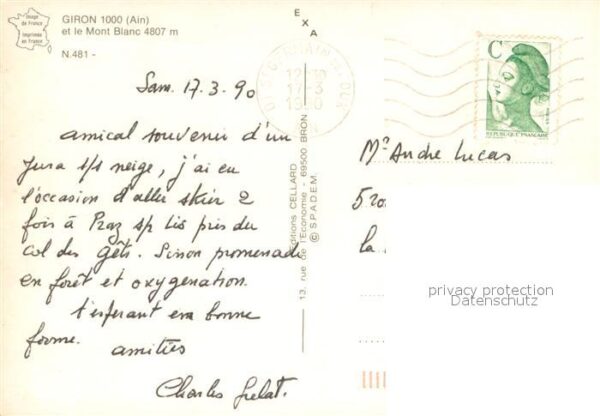 Image
de France
Imprimée
en France
GIRON 1000 (Ain)
et le Mont Blanc 4807 m
N.481 -
E
X
A
Sam. 17.3.90
amical souvenir d'un
Jura s/s neige, j'ai eu
l'occasion d'aller skier 2
fois à Praz sp lis près du
col des Gêts. Sinon promenade
en forêt et oxygenation.
t'esperant en bonne
forme.
amitiés
Charles
Editions CELLARD
13, rue de l'Economie - 69500 BRON
© SPADEM
17-3
C
REPUBLIQUE FRANÇAISE
Mr Andre Lucas
520
la
privacy protection
Datenschutz